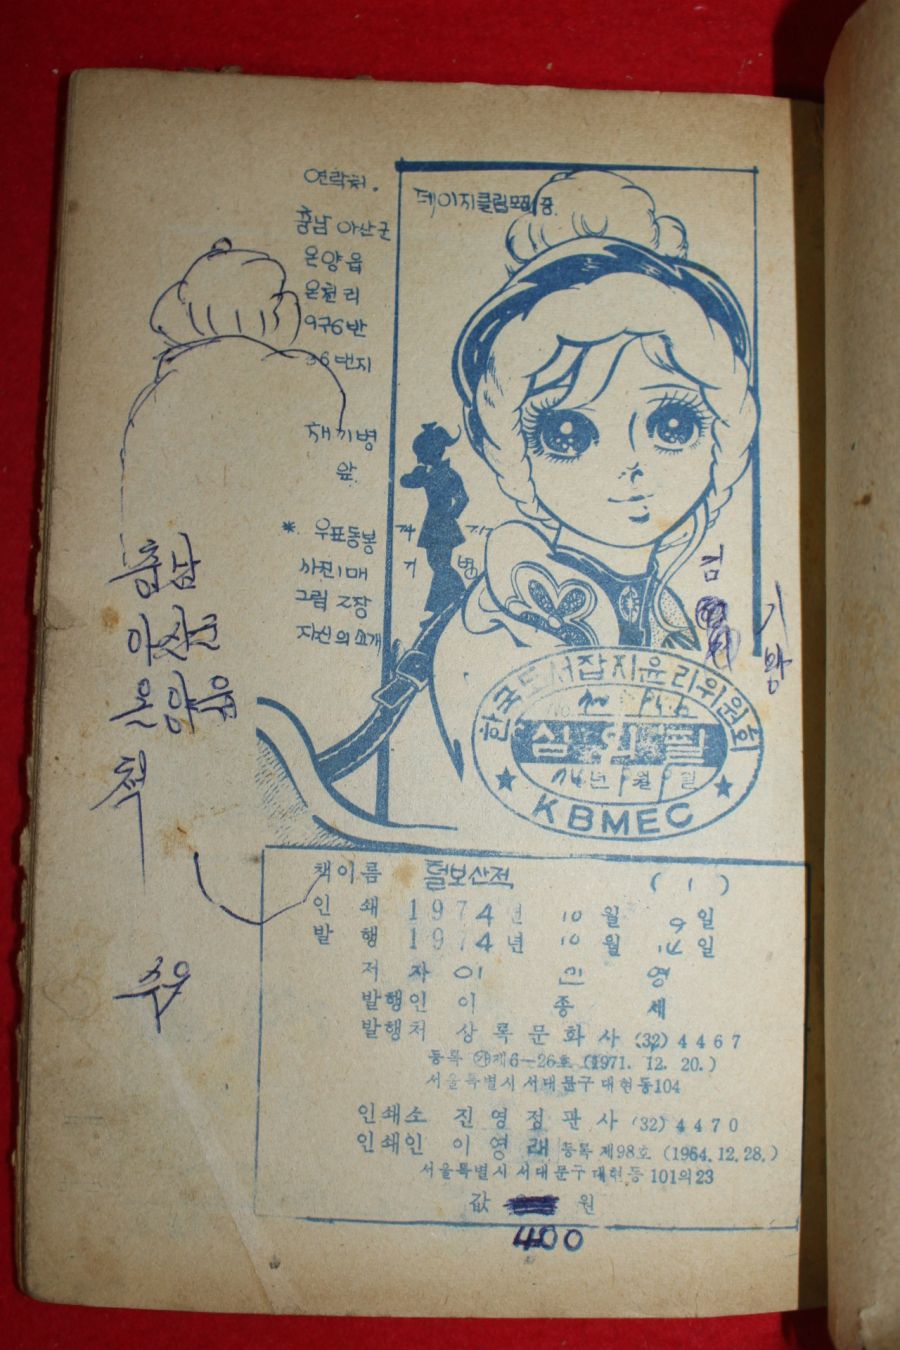 연락처.
충남 아산군
온양읍
온천리
9구6반
36번지
채기병
앞.
*. 우표동봉
사진1매
그림 2장
자신의 소개
데이지클럽모집중.
74 7.17
기 병
김
기
왕
충남
아산
온양
한국도서잡지윤리위원회
No.
심의필
74년 9월 9일
KBMEC
책이름 털보산적 (1)
인쇄 1974년 10월 9일
발행 1974년 10월 14일
저자 이 민 영
발행인 이 종 세
발행처 상록문화사 (32) 4467
등록 제6-26호 (1971. 12. 20.)
서울특별시 서대문구 대현동104
인쇄소 진영정판사 (32) 4470
인쇄인 이영래 등록 제98호 (1964. 12. 28.)
서울특별시 서대문구 대현동 101의23
값 원
400